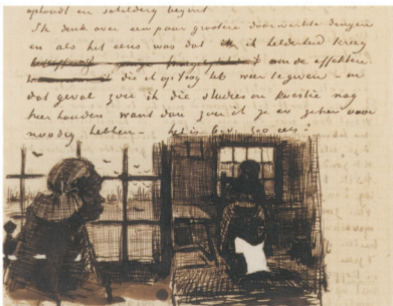 ophoudt en schildery begint.
Ik denk over een paar grootere doorwerkte dingen
en als het eens was dat ik helderheid kreeg
om de effekten
die ik op 't oog heb weer te geven – in
dat geval zou ik die studies en kwestie nog
hier houden want dan zou ik ze er zeker voor
noodig hebben – het is bijv. zoo iets: